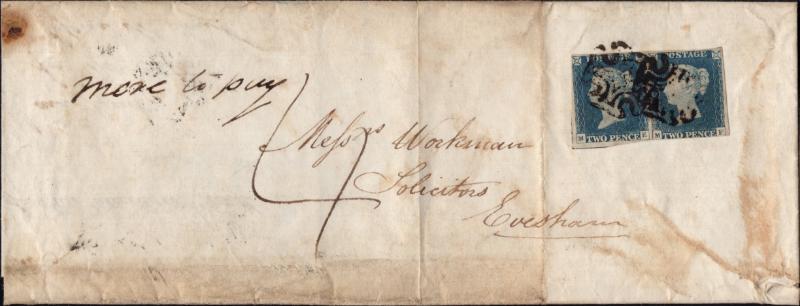 more to pay
4
Messrs Workman
Solicitors
Evesham
POSTAGE
TWO PENCE
M
TWO PENCE